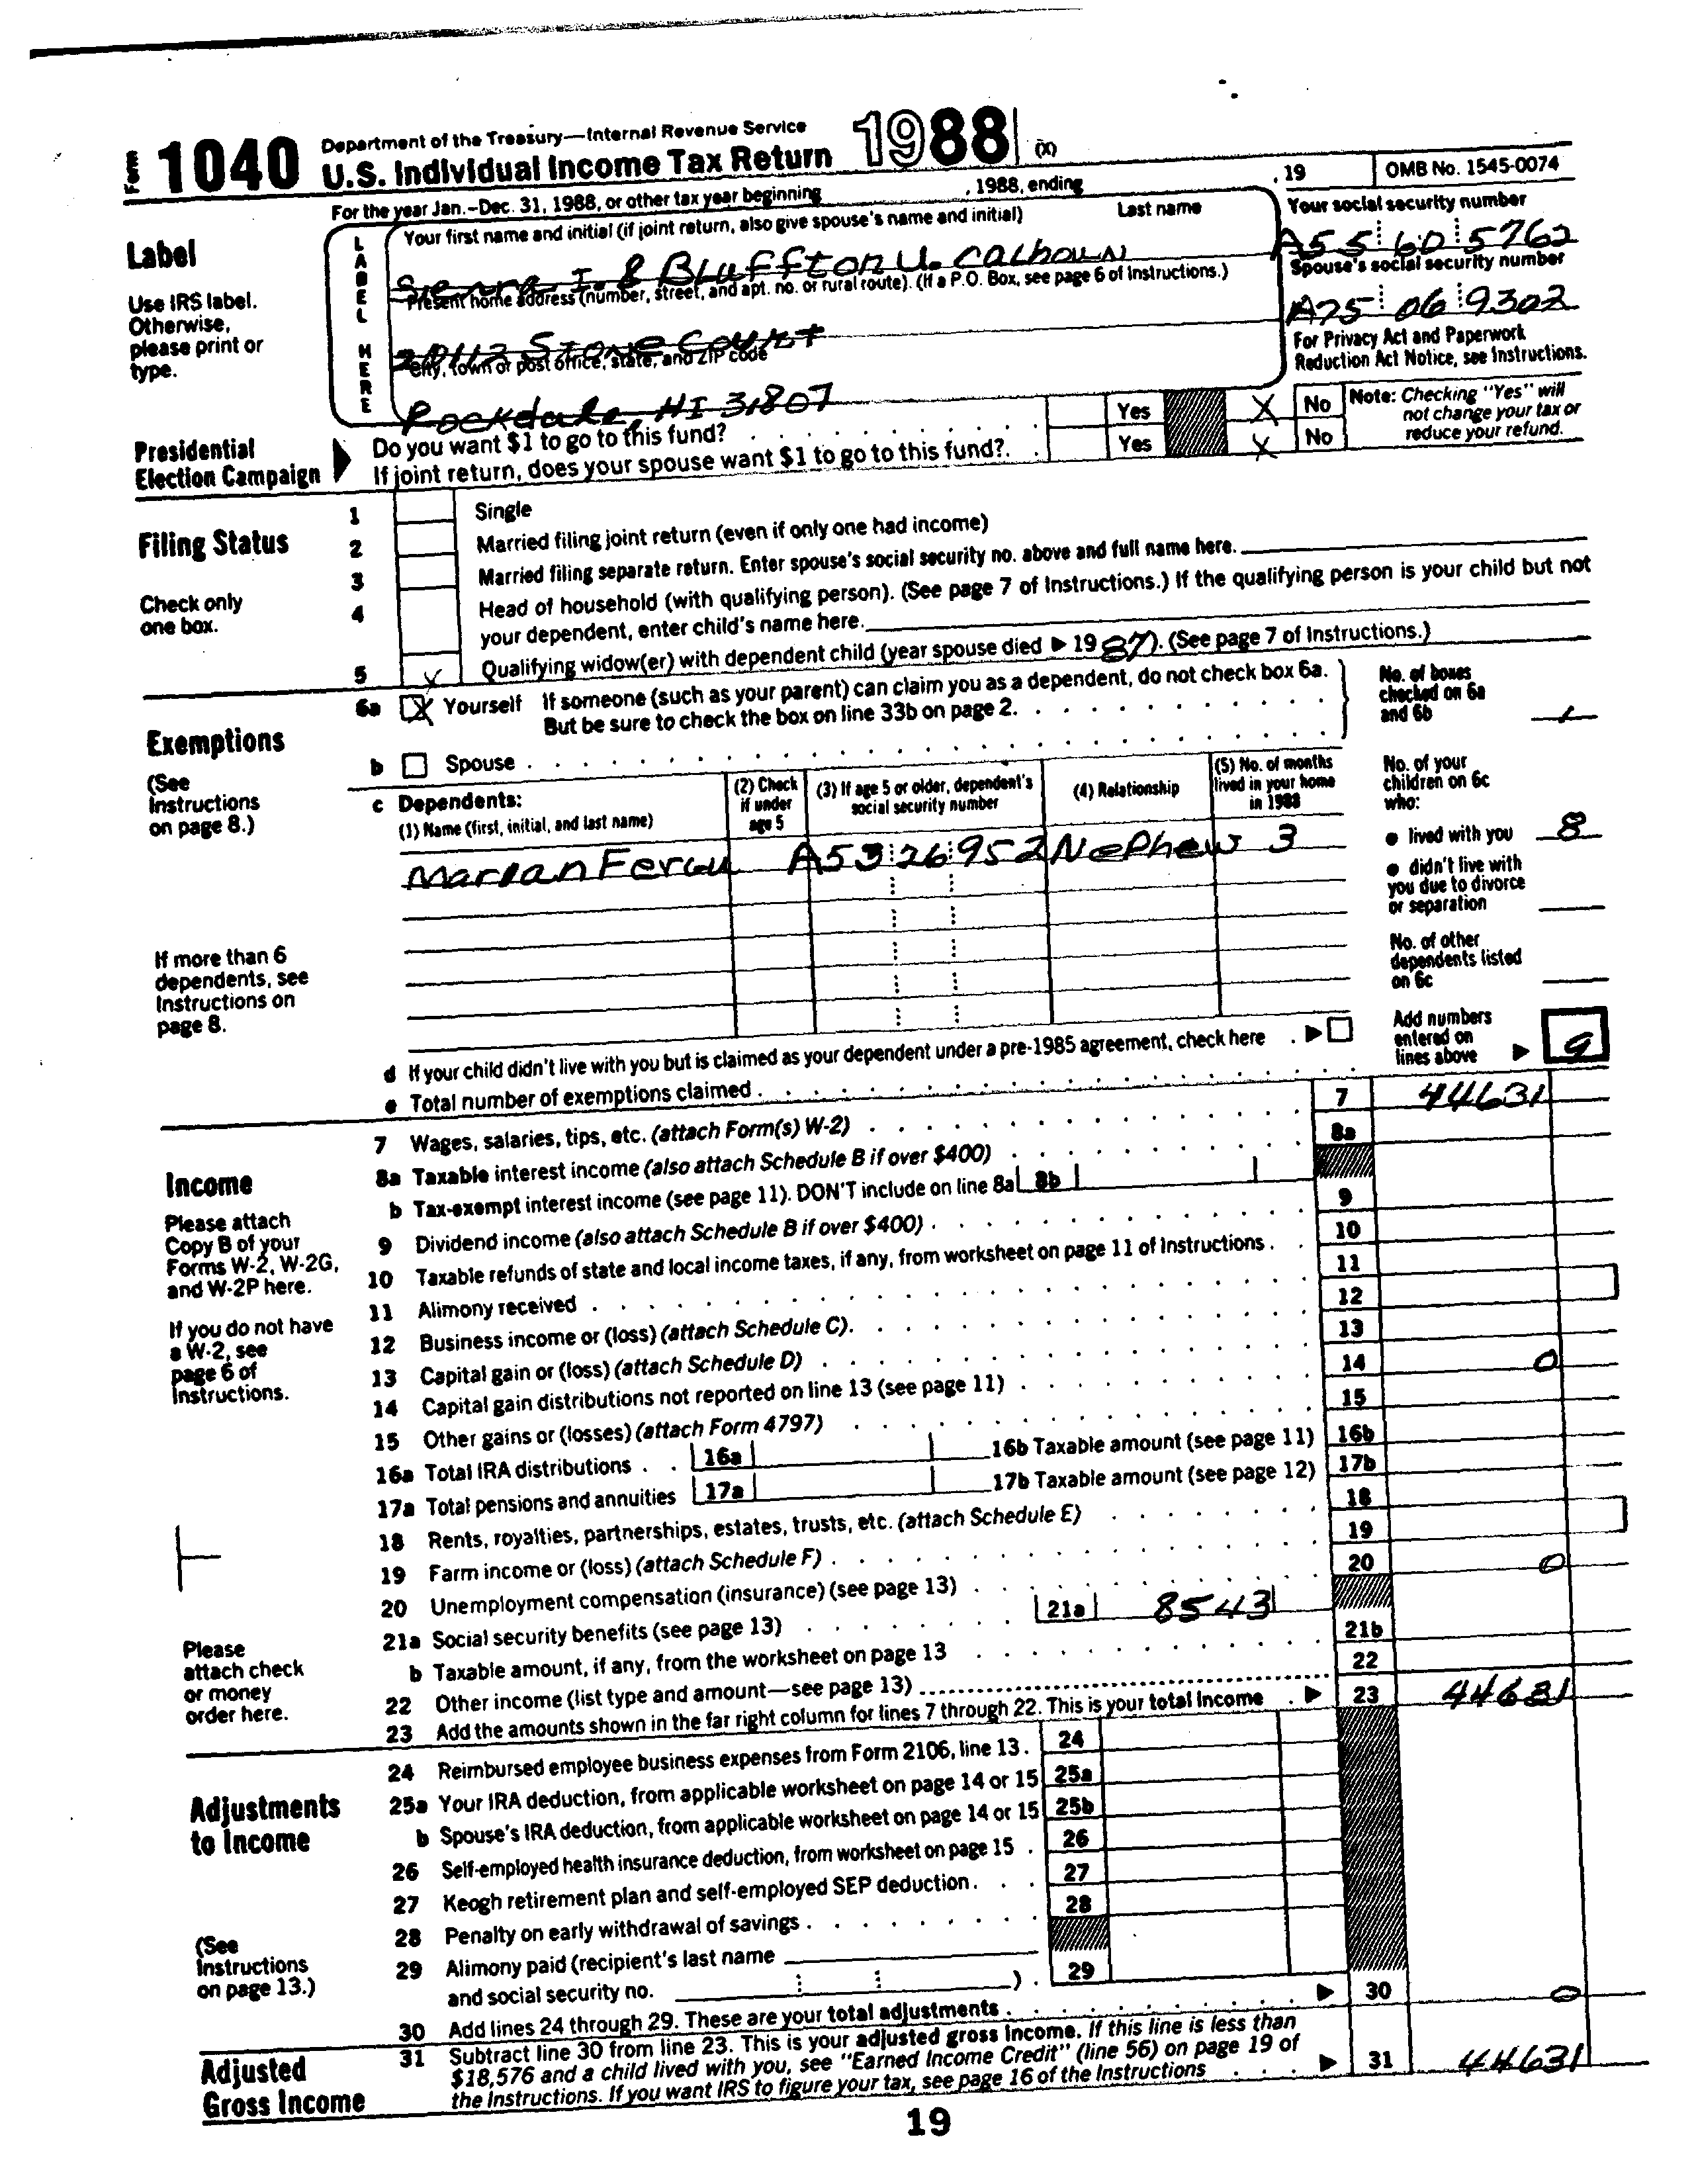 Form 1040 Department of the Treasury—Internal Revenue Service
U.S. Individual Income Tax Return 1988 (X)
For the year Jan.-Dec. 31, 1988, or other tax year beginning , 1988, ending , 19 OMB No. 1545-0074
Label
Use IRS label.
Otherwise,
please print or
type.
LABEL HERE
Your first name and initial (if joint return, also give spouse's name and initial) Last name
Sienna I. & Bluffton U. Calhoun
Your social security number
A55 60 5762
Present home address (number, street, and apt. no. or rural route). (If a P.O. Box, see page 6 of Instructions.)
20112 Stone Court
Spouse's social security number
A75 06 9302
City, town or post office, state, and ZIP code
Rockdale, HI 31807
For Privacy Act and Paperwork
Reduction Act Notice, see Instructions.
Presidential
Election Campaign
Do you want $1 to go to this fund? Yes X No
If joint return, does your spouse want $1 to go to this fund? Yes X No
Note: Checking "Yes" will
not change your tax or
reduce your refund.
Filing Status
Check only
one box.
1 Single
2 Married filing joint return (even if only one had income)
3 Married filing separate return. Enter spouse's social security no. above and full name here.
4 Head of household (with qualifying person). (See page 7 of Instructions.) If the qualifying person is your child but not
your dependent, enter child's name here.
5 X Qualifying widow(er) with dependent child (year spouse died ▶ 19 87). (See page 7 of Instructions.)
Exemptions
(See
Instructions
on page 8.)
6a X Yourself If someone (such as your parent) can claim you as a dependent, do not check box 6a.
But be sure to check the box on line 33b on page 2.
b Spouse
No. of boxes
checked on 6a
and 6b 1
c Dependents:
(1) Name (first, initial, and last name)
(2) Check
if under
age 5
(3) If age 5 or older, dependent's
social security number
(4) Relationship
(5) No. of months
lived in your home
in 1988
Marian Fergu A53 26 952 Nephew 3
No. of your
children on 6c
who:
● lived with you 8
● didn't live with
you due to divorce
or separation
No. of other
dependents listed
on 6c
If more than 6
dependents, see
Instructions on
page 8.
d If your child didn't live with you but is claimed as your dependent under a pre-1985 agreement, check here ▶
e Total number of exemptions claimed
Add numbers
entered on
lines above ▶ 9
Income
Please attach
Copy B of your
Forms W-2, W-2G,
and W-2P here.
If you do not have
a W-2, see
page 6 of
Instructions.
Please
attach check
or money
order here.
7 Wages, salaries, tips, etc. (attach Form(s) W-2) 7 44631
8a Taxable interest income (also attach Schedule B if over $400) 8a
b Tax-exempt interest income (see page 11). DON'T include on line 8a 8b
9 Dividend income (also attach Schedule B if over $400) 9
10 Taxable refunds of state and local income taxes, if any, from worksheet on page 11 of Instructions 10
11 Alimony received 11
12 Business income or (loss) (attach Schedule C) 12
13 Capital gain or (loss) (attach Schedule D) 13
14 Capital gain distributions not reported on line 13 (see page 11) 14 0
15 Other gains or (losses) (attach Form 4797) 15
16a Total IRA distributions 16a 16b Taxable amount (see page 11) 16b
17a Total pensions and annuities 17a 17b Taxable amount (see page 12) 17b
18 Rents, royalties, partnerships, estates, trusts, etc. (attach Schedule E) 18
19 Farm income or (loss) (attach Schedule F) 19
20 Unemployment compensation (insurance) (see page 13) 20 0
21a Social security benefits (see page 13) 21a 8543
b Taxable amount, if any, from the worksheet on page 13 21b
22 Other income (list type and amount—see page 13) 22
23 Add the amounts shown in the far right column for lines 7 through 22. This is your total income ▶ 23 44631
Adjustments
to Income
(See
Instructions
on page 13.)
24 Reimbursed employee business expenses from Form 2106, line 13 24
25a Your IRA deduction, from applicable worksheet on page 14 or 15 25a
b Spouse's IRA deduction, from applicable worksheet on page 14 or 15 25b
26 Self-employed health insurance deduction, from worksheet on page 15 26
27 Keogh retirement plan and self-employed SEP deduction 27
28 Penalty on early withdrawal of savings 28
29 Alimony paid (recipient's last name
and social security no. ) 29
30 Add lines 24 through 29. These are your total adjustments ▶ 30 0
Adjusted
Gross Income
31 Subtract line 30 from line 23. This is your adjusted gross income. If this line is less than
$18,576 and a child lived with you, see "Earned Income Credit" (line 56) on page 19 of
the Instructions. If you want IRS to figure your tax, see page 16 of the Instructions ▶ 31 44631
19